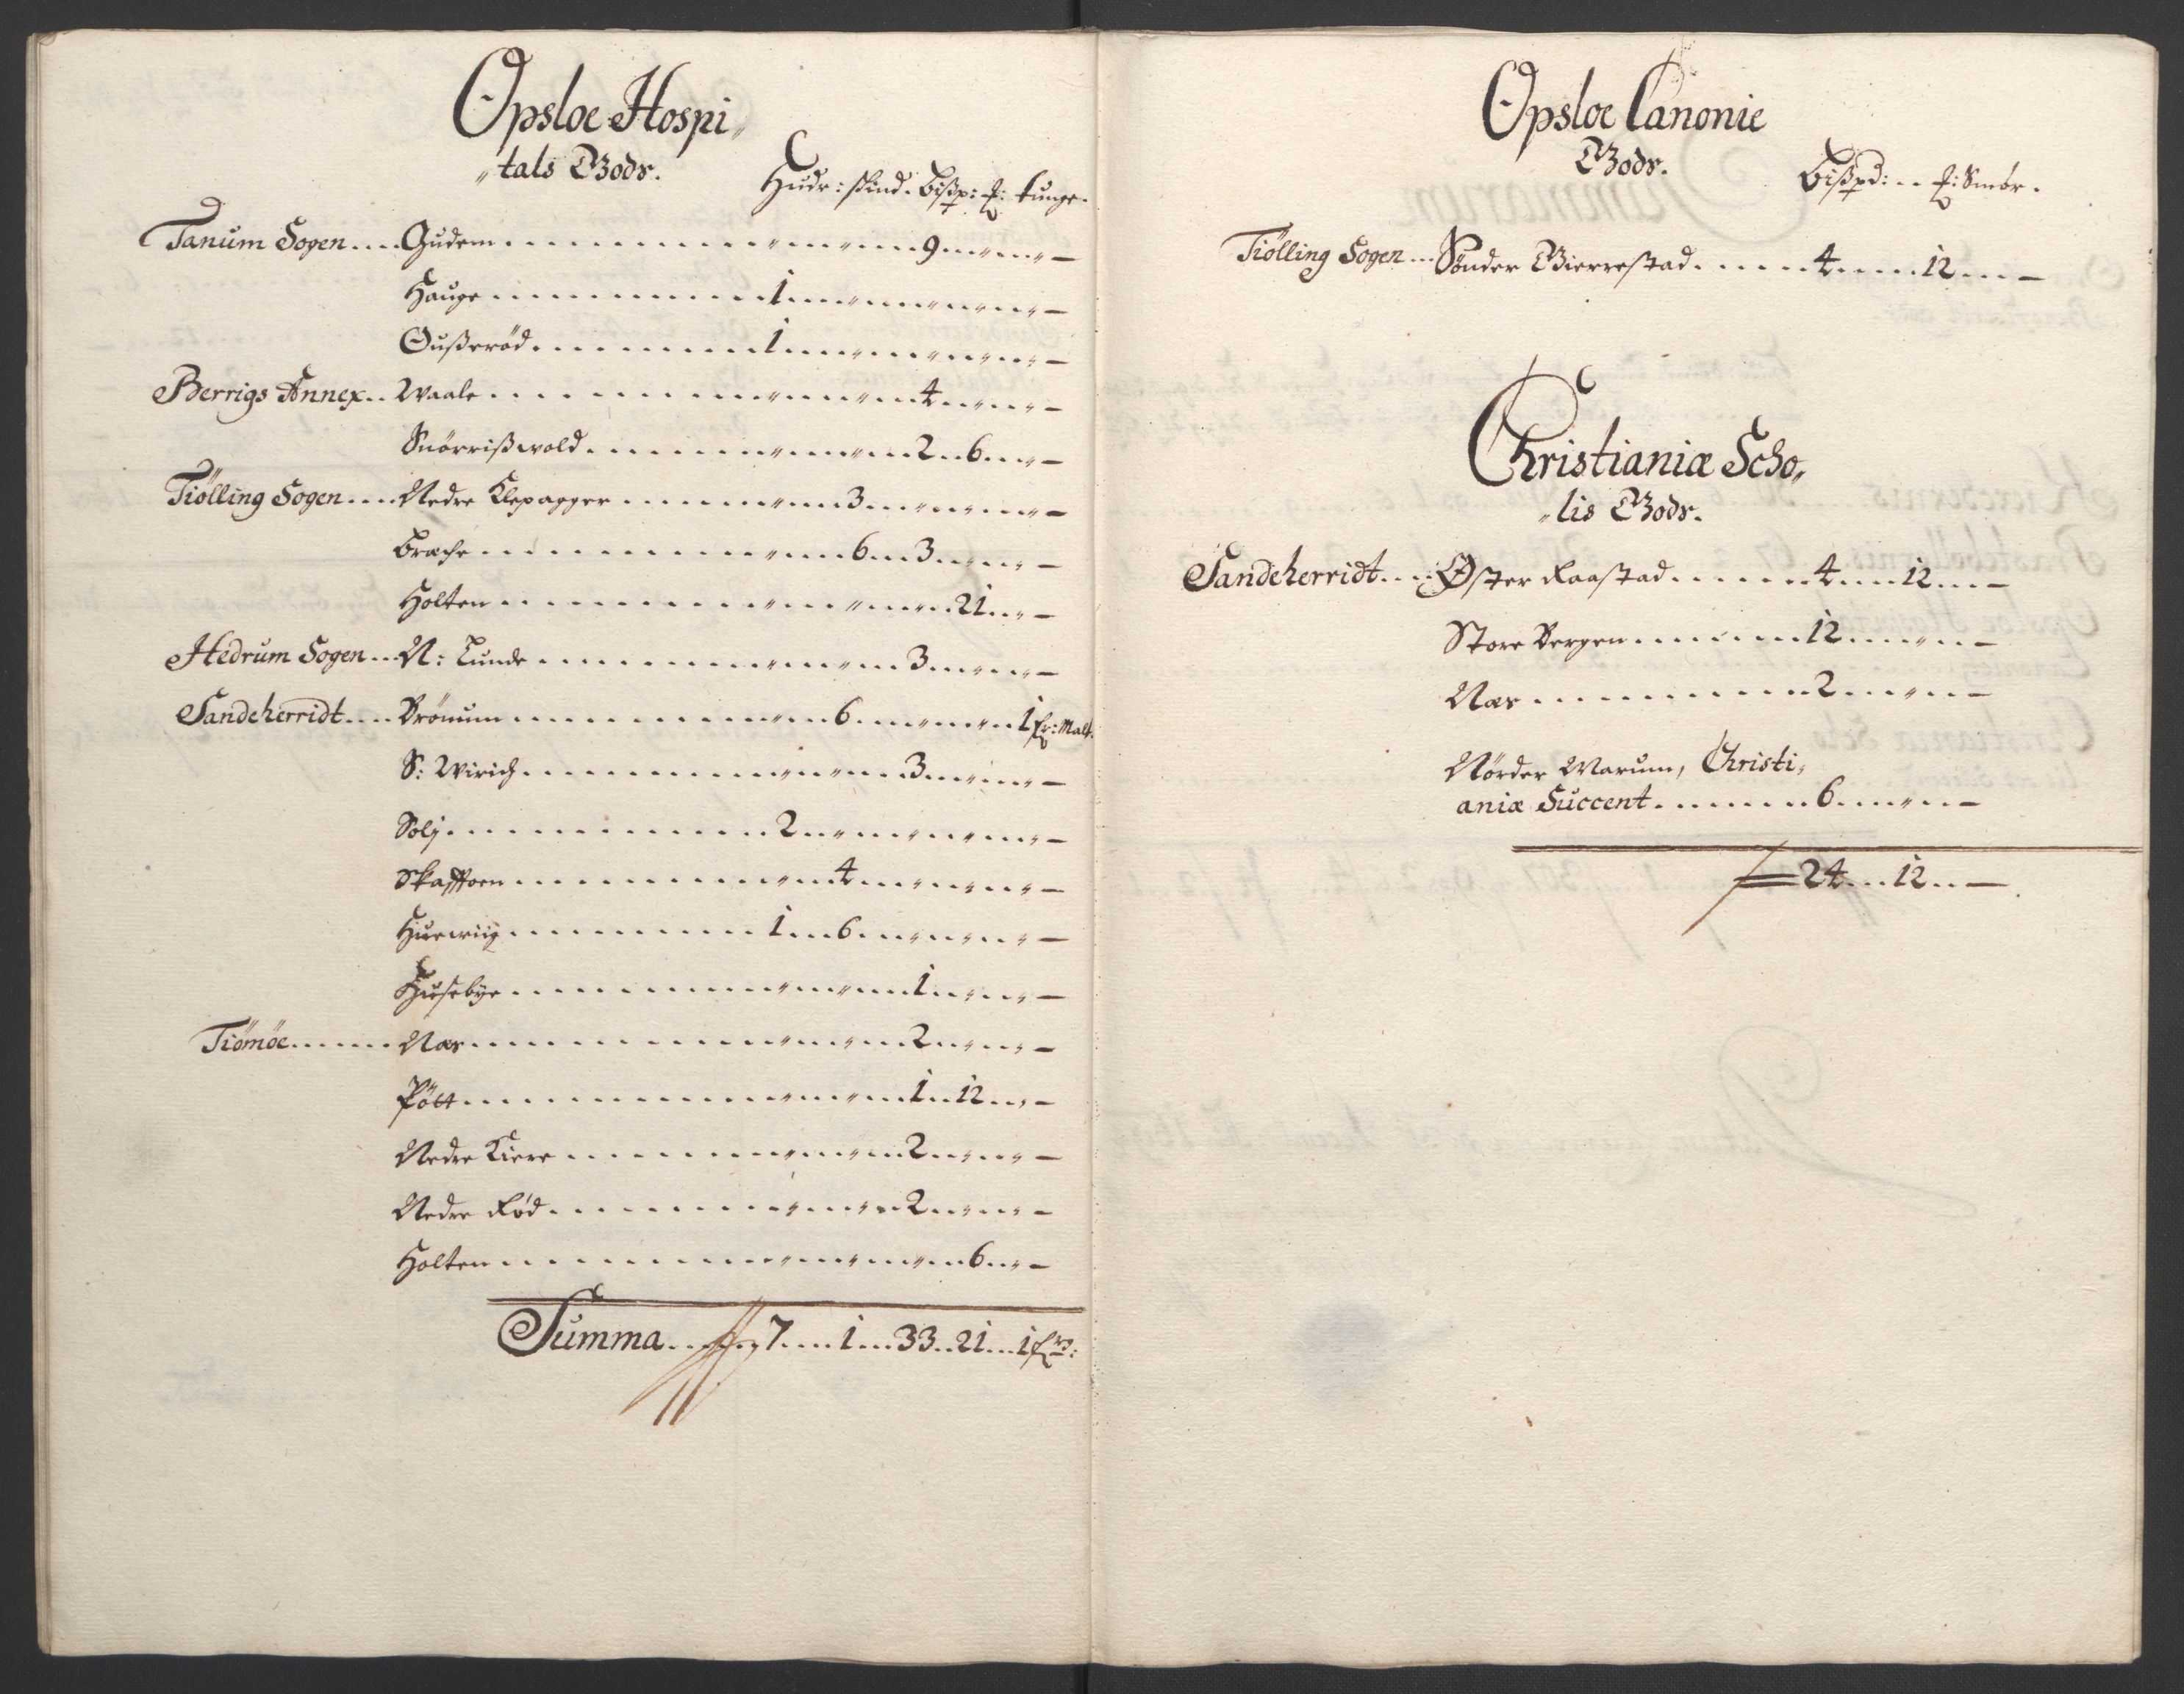 Opsloe Hospi„
„tals Godz.
Hudr: skind. bißp: f: tunge.
Tanum Sogen....Gudem............9.....„—
Hauge............1............—
Oußerød............1............—
Berrigs Annex..Waale............4......—
Snörrißwold............2..6...—
Tiölling Sogen....Nedre Klepagger............3......—
Brache............6...3......—
Holten............21...—
Hedrum Sogen...N: Lunde............3......—
Sandeherridt....Brönum............6.........1 fr: Malt.
S: Wirich............3......—
Solj............2............—
Skafftoen............4.........—
Huewiig............1...6.........—
Husebye............1......—
Tiömöe......Næs............2......—
Pött............1..12...—
Nedre Kiere............2......—
Nedre Rød............2......—
Holten............6...—
Summa......7....1...33..21...1 fr:
Opsloe Canonie
Godz.
bißpd: .. f: Smör.
Tiölling Sogen...Sönder Bierrestad......4....12...—
Christianiæ Scho„
„lis Godz.
Sandeherridt....Øster Raastad......4....12...—
Store Bergen......12......—
Næs............2......—
Nörder Marum, Christi„
aniæ Succent......6......—
24...12..—